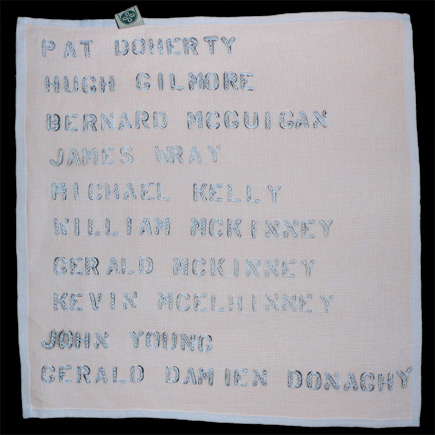 PAT DOHERTY
HUGH GILMORE
BERNARD MCGUIGAN
JAMES WRAY
MICHAEL KELLY
WILLIAM MCKINNEY
GERALD MCKINNEY
KEVIN MCELHINNEY
JOHN YOUNG
GERALD DAMIEN DONAGHY